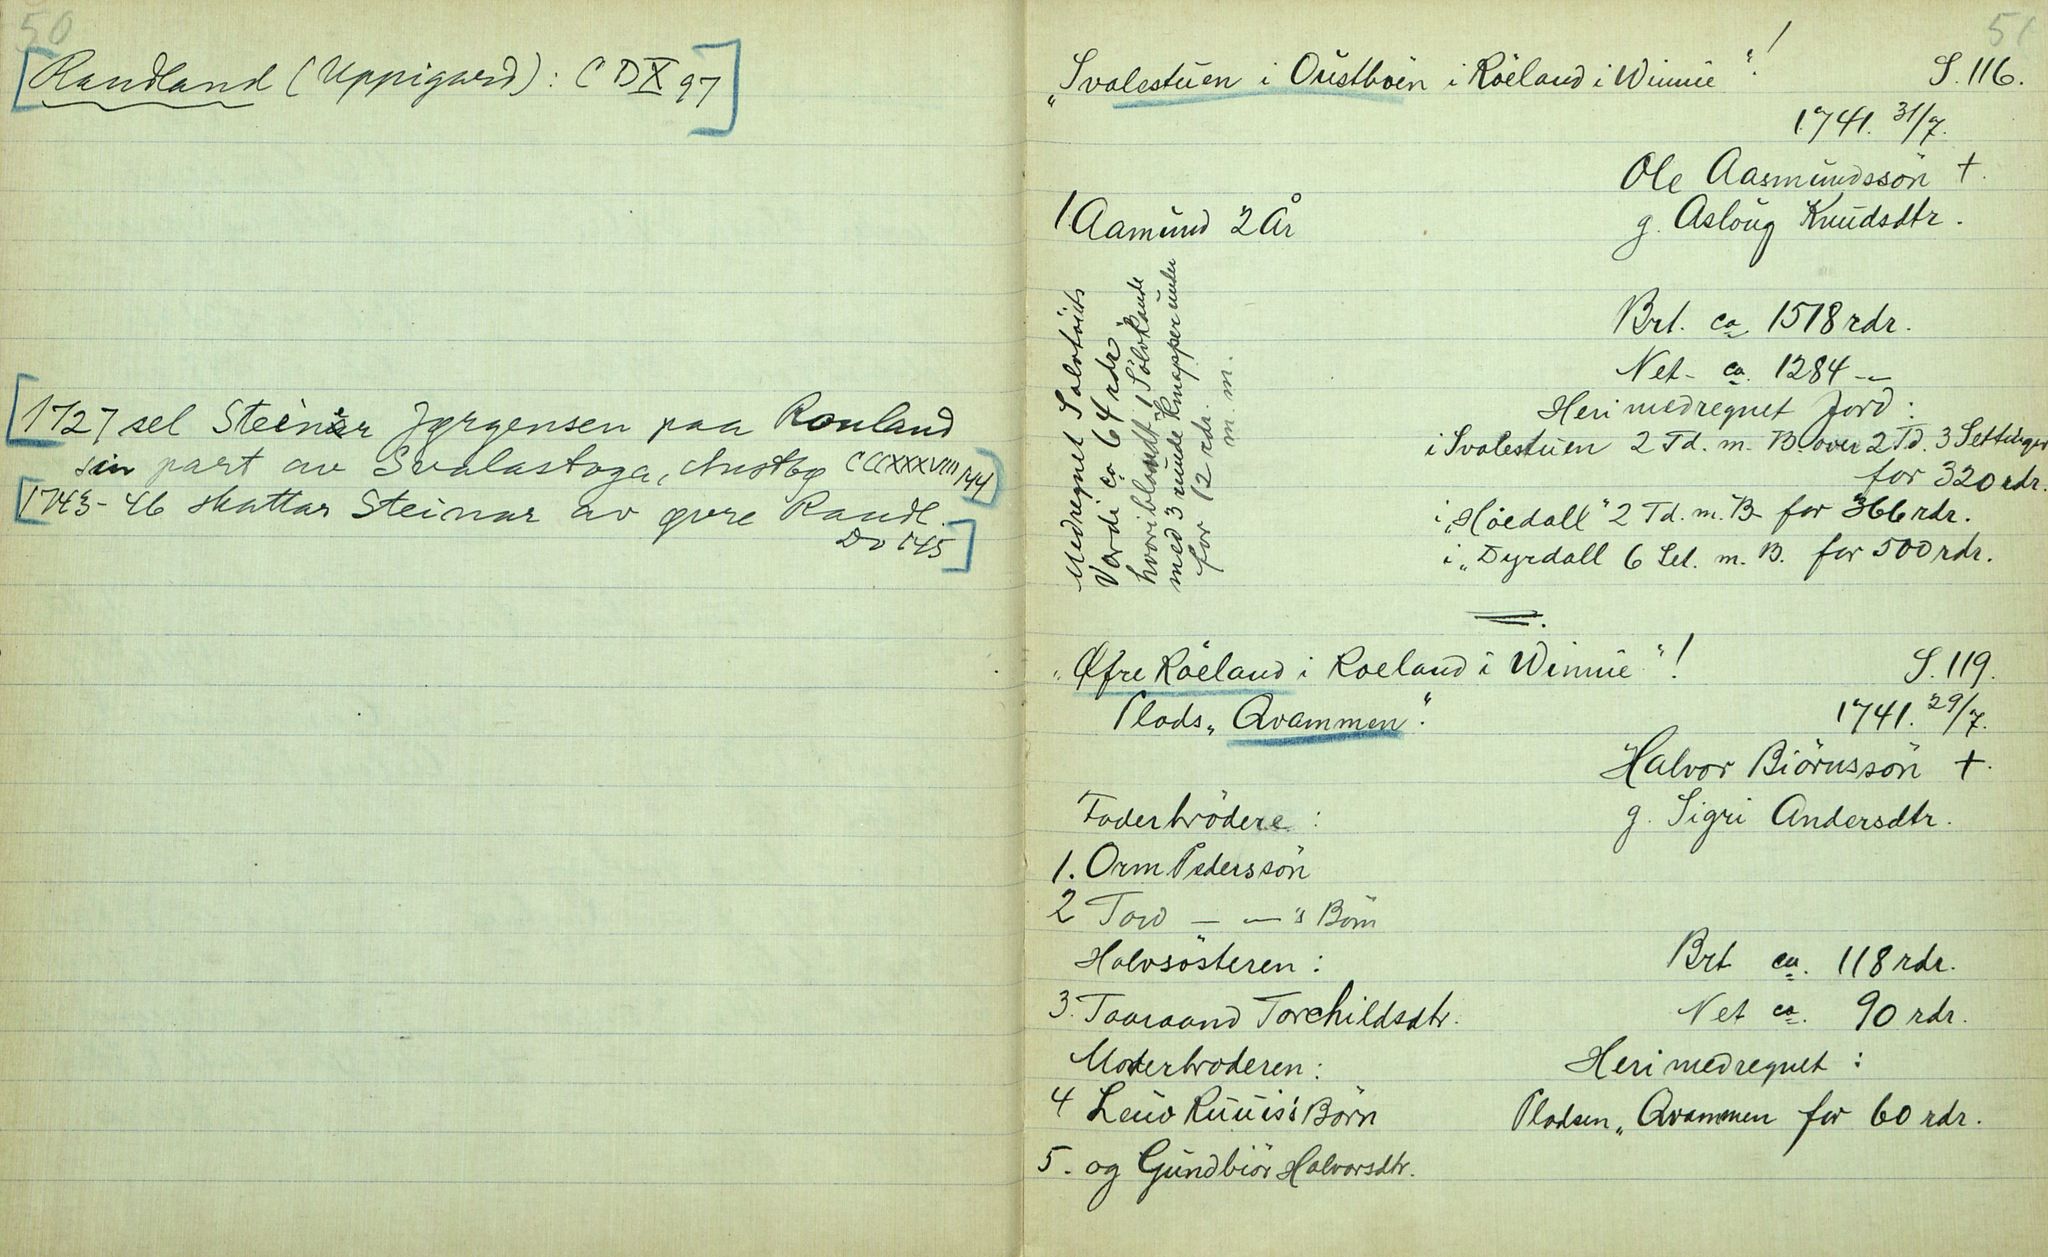 50
[Raudland (Uppigard): C D X 97]
[1727 sel Steinar Jørgensen paa Rauland
sin part av Svalastoga, Austbø CCCXXXVIII 144]
[1745-46 skattar Steinar av øvre Raudl.
Do 145]
51
"Svalestuen i Oustböen i Röeland i Winnie"!
S. 116.
1741. 31/7.
Ole Aasmundssön +.
g. Aslöug Knudsdtr.
1. Aamund 2 År
Medregnet Sølvtöiets
Værdi ca 64 rdr
hvoriblandt "1 Sölvkande
med 3 runde Knapper under"
for 12 rdr.
m. m.
Brt. ca. 1518 rdr.
Net - ca. 1284 -"-
Heri medregnet Jord:
i Svalestuen 2 Td. m. B. over 2 Td. 3 Settinger
for 320 rdr.
i "Höedall" 2 Td. m. B. for 366 rdr.
i "Dyrdall 6 Set. m. B. for 500 rdr.
"Øfre Röeland i Roeland i Winnie"!
S. 119.
Plads "Qvammen".
1741. 29/7.
Halvor Biörnssön +.
g. Sigri Andersdtr.
Faderbrödere:
1. Orm Pederssön
2 Tov — —"'s Börn
Halvsösteren:
3. Taaraand Torchildsdtr.
Moderbroderen:
4 Leuv Ruuis's Börn
5. og Gundbiör Halvorsdtr.
Brt ca. 118 rdr.
Net ca. 90 rdr.
Heri medregnet:
Pladsen "Qvammen for 60 rdr.